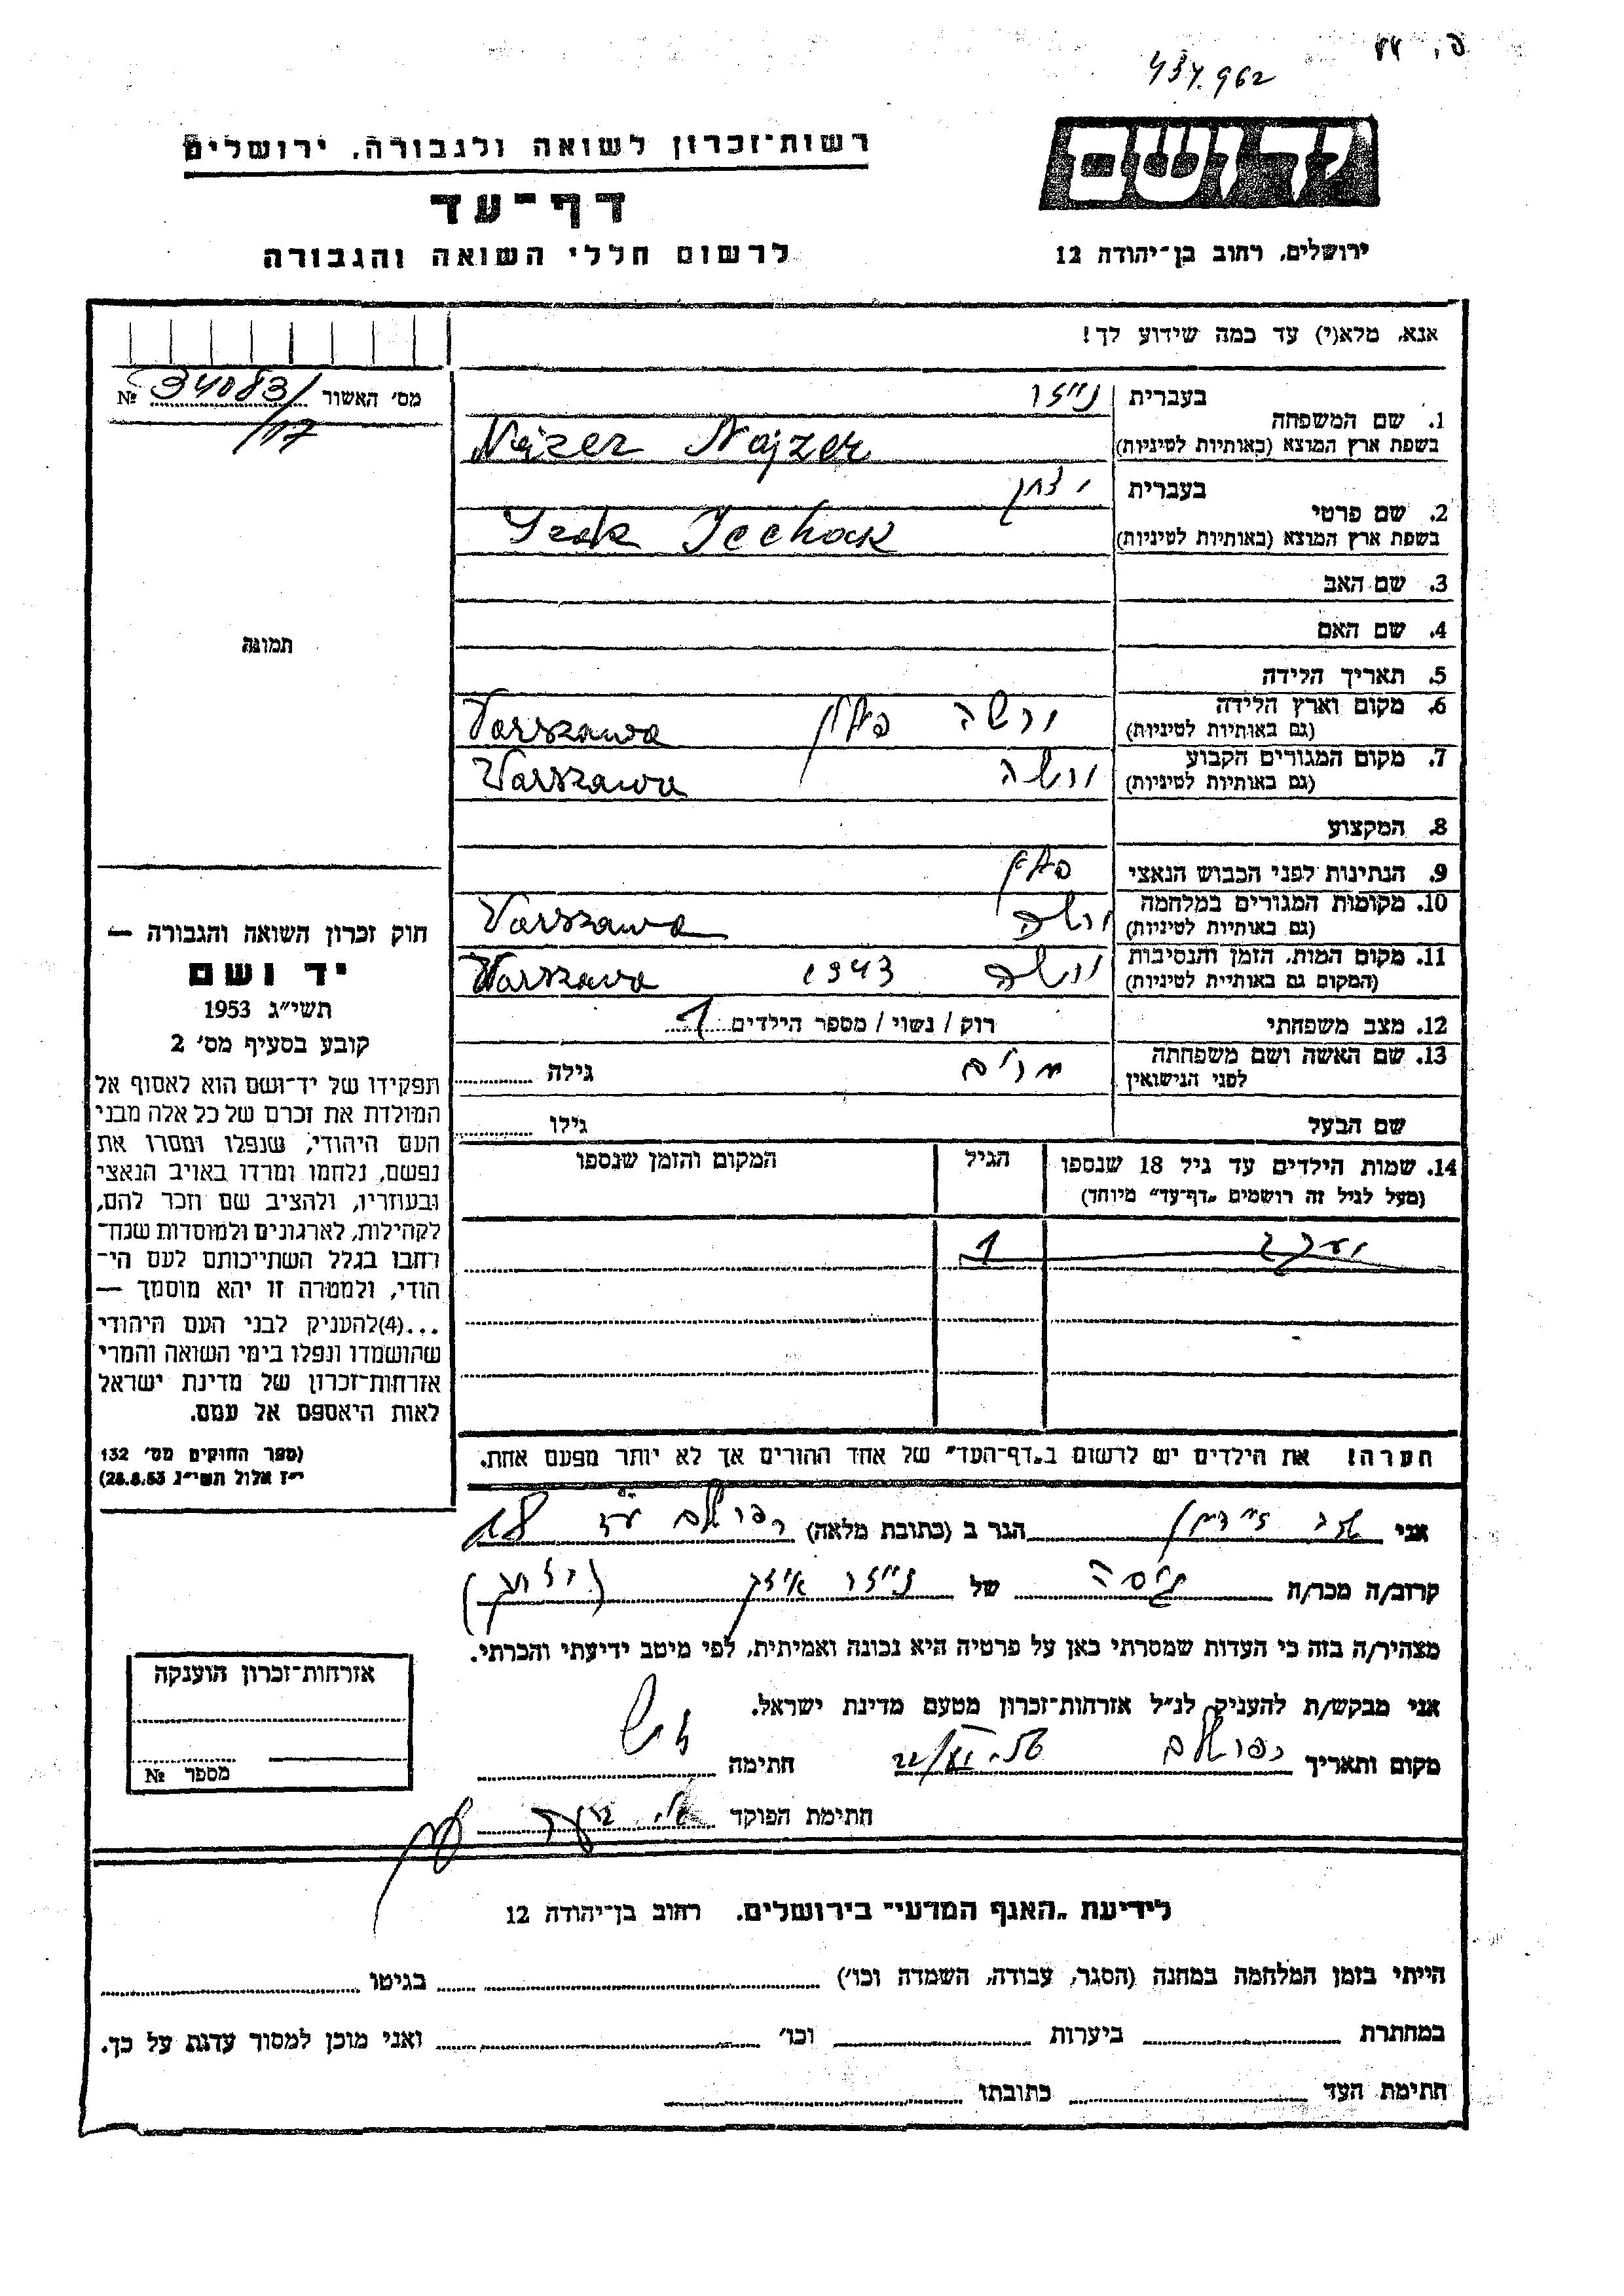 434.962
יד ושם
ירושלים, רחוב בן־יהודה 12
רשות־זכרון לשואה ולגבורה, ירושלים
דף־עד
לרשום חללי השואה והגבורה
אנא, מלא(י) עד כמה שידוע לך!
מס׳ האשור 34083/17 №
1. שם המשפחה
בעברית נייזר
בשפת ארץ המוצא (באותיות לטיניות) Najzer Najzer
2. שם פרטי
בעברית יצחק
בשפת ארץ המוצא (באותיות לטיניות) Izak Icchok
3. שם האב
4. שם האם
5. תאריך הלידה
6. מקום וארץ הלידה ורשה פולין Varszawa
(גם באותיות לטיניות)
7. מקום המגורים הקבוע ורשה Varszawa
(גם באותיות לטיניות)
8. המקצוע
9. הנתינות לפני הכבוש הנאצי פולין
10. מקומות המגורים במלחמה ורשה Varszawa
(גם באותיות לטיניות)
11. מקום המות, הזמן והנסיבות ורשה 1943 Warszawa
(המקום גם באותיית לטיניות)
12. מצב משפחתי רוק / נשוי / מספר הילדים 1
13. שם האשה ושם משפחתה מרים גילה
לפני הנישואין
שם הבעל גילו
14. שמות הילדים עד גיל 18 שנספו הגיל המקום והזמן שנספו
(מעל לגיל זה רושמים „דף־עד״ מיוחד)
יעקב 1
הערה! את הילדים יש לרשום ב„דף־העד״ של אחד ההורים אך לא יותר מפעם אחת.
תמונה
חוק זכרון השואה והגבורה —
יד ושם
תשי״ג 1953
קובע בסעיף מס׳ 2
תפקידו של יד־ושם הוא לאסוף אל
המולדת את זכרם של כל אלה מבני
העם היהודי, שנפלו ומסרו את
נפשם, נלחמו ומרדו באויב הנאצי
ובעוזריו, ולהציב שם וזכר להם,
לקהילות, לארגונים ולמוסדות שנח־
רחבו בגלל השתייכותם לעם הי־
הודי, ולמטרה זו יהא מוסמך —
...(4)להעניק לבני העם היהודי
שהושמדו ונפלו בימי השואה והמרי
אזרחות־זכרון של מדינת ישראל
לאות היאספם אל עמם.
(ספר החוקים מס׳ 132
י״ז אלול תשי״ג 28.8.53)
אני הגר ב (כתובת מלאה) 18
קרוב/ה מכר/ה גיסה של נייזר איזק (יצחק)
מצהיר/ה בזה כי העדות שמסרתי כאן על פרטיה היא נכונה ואמיתית, לפי מיטב ידיעתי והכרתי.
אני מבקש/ת להעניק לנ״ל אזרחות־זכרון מטעם מדינת ישראל.
מקום ותאריך ירושלים חתימה
חתימת הפוקד
אזרחות־זכרון הוענקה
מספר №
לידיעת „האגף המדעי״ בירושלים, רחוב בן־יהודה 12
הייתי בזמן המלחמה במחנה (הסגר, עבודה, השמדה וכו׳) בגיטו
במחתרת ביערות וכו׳ ואני מוכן למסור עדות על כך.
חתימת העד כתובתו